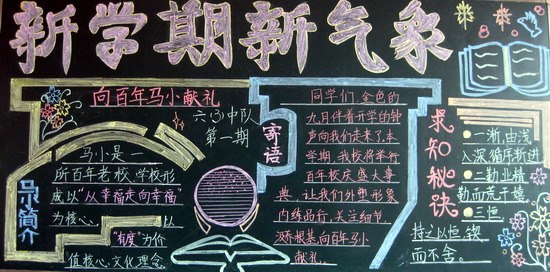 新学期新气象
向百年马小献礼
六(3)中队
第一期
马小简介
马小是一
所百年老校,学校形
成以“从幸福走向幸福”
为核心,以
“有度”为价
值核心文化理念
寄语
同学们,金色的
九月伴着开学的钟
声向我们走来了本
学期,我校将举行
百年校庆盛大事
典,让我们外塑形象
内练品行,关注细节
根基,向百年马小
献礼。
求知秘诀
一渐,由浅
入深循序渐进
二勤业精
勤而荒于嬉。
三恒
持之以恒,锲
而不舍。